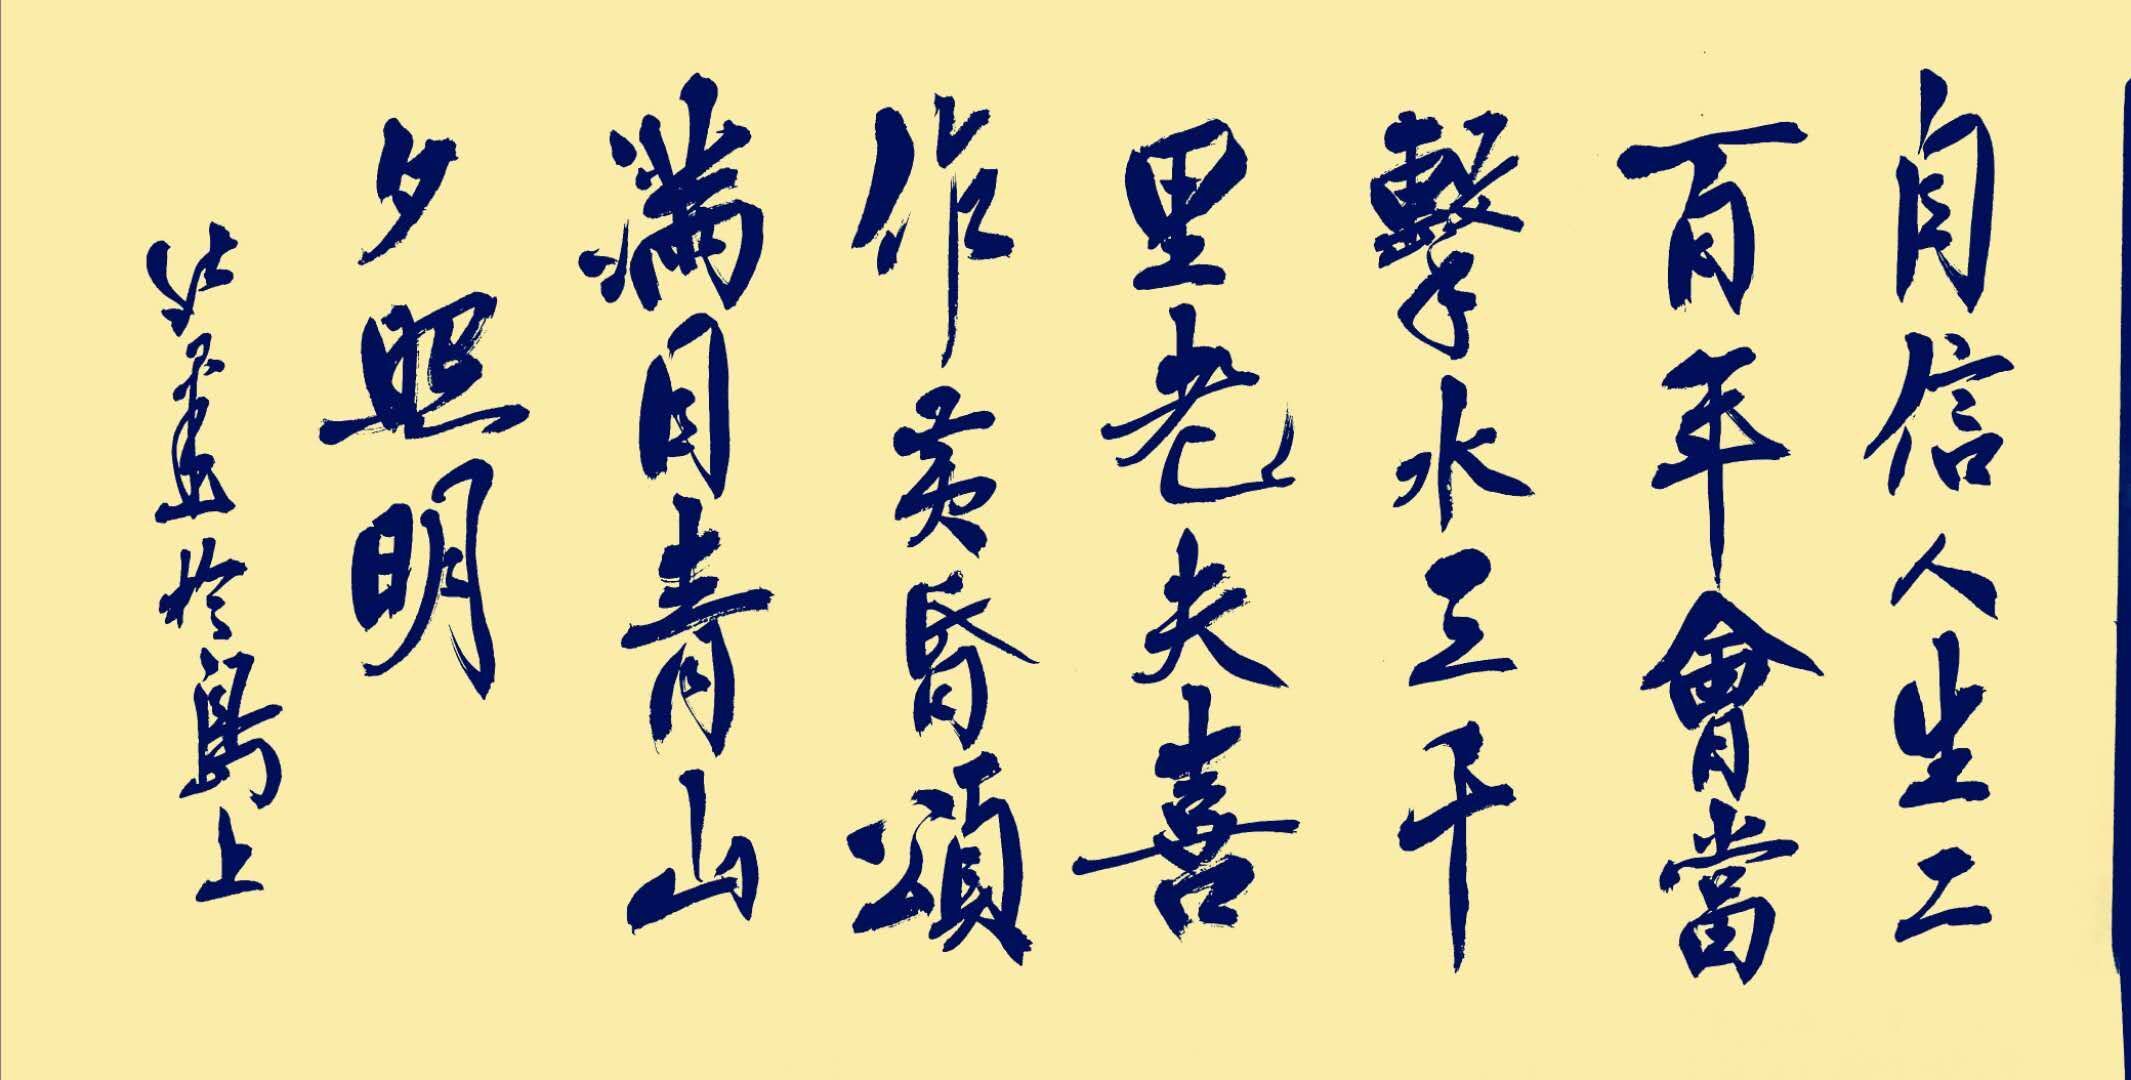 自信人生二
百年會當
擊水三千
里老夫喜
作黃昏頌
滿目青山
夕照明
於島上